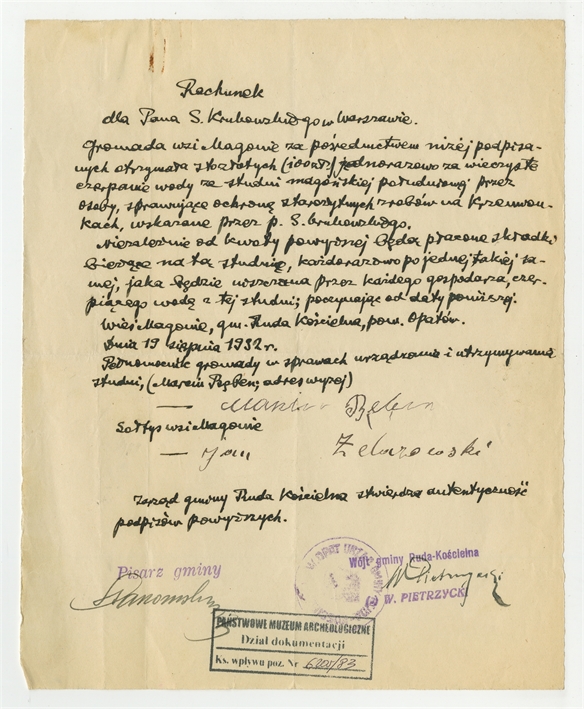 Rachunek
dla Pana S. Krukowskiego w Warszawie.
Gromada wsi Magonie za pośrednictwem niżej podpisa-
nych otrzymała sto złotych (100 zł) jednorazowo za wieczyste
czerpanie wody ze studni magońskiej południowej przez
osoby, sprawujące ochronę starożytnych zrobów na Krzemion-
kach, wskazane przez p. S. Krukowskiego.
Niezależnie od kwoty powyższej będą płacone składki
bieżące na tą studnię, każdorazowo po jednej takiej sa-
mej, jaka będzie uiszczana przez każdego gospodarza, czer-
piącego wodę z tej studni; poczynając od daty poniższej.
Wieś Magonie, gm. Ruda Kościelna, pow. Opatów.
Dnia 19 sierpnia 1932 r.
Pełnomocnik gromady w sprawach urządzania i utrzymywania
studni, (Marcin Bęben; adres wyżej)
— Marcin Bęben
Sołtys wsi Magonie
— Jan Żelazowski
Zarząd gminy Ruda Kościelna stwierdza autentyczność
podpisów powyższych.
Pisarz gminy
Wójt gminy Ruda-Kościelna
W. Pietrzycki
(-) W. PIETRZYCKI
PAŃSTWOWE MUZEUM ARCHEOLOGICZNE
Dział dokumentacji
Ks. wpływu poz. Nr 6201/83